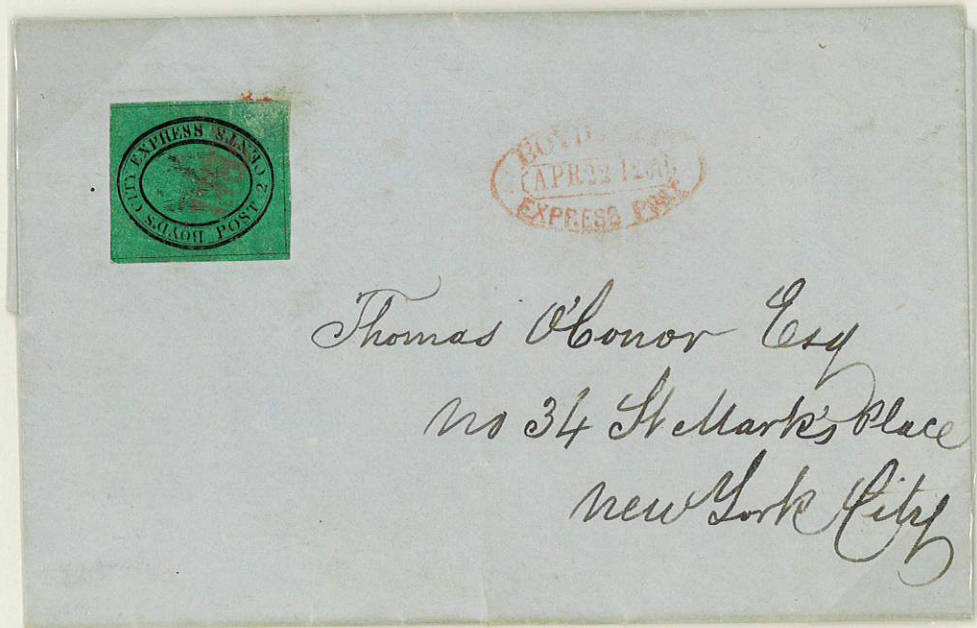 BOYD'S CITY EXPRESS POST 2 CENTS.
BOYD'S
APR 22
EXPRESS POST
Thomas O'Conor Esq
No 34 St Mark's Place
New York City